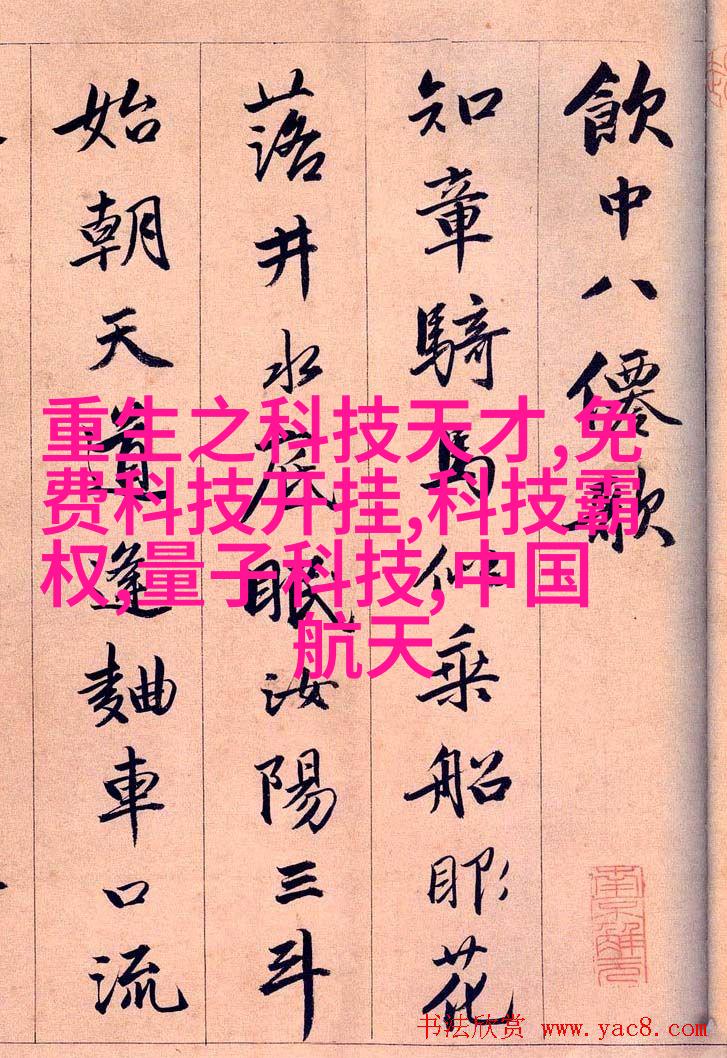 飲中八僊歌
知章騎馬似乘船眼花
落井水底眠汝陽三斗
始朝天道逢麹車口流
重生之科技天才,免
费科技开挂,科技霸
权,量子科技,中国
航天
南京解元
书法欣赏 www.yac8.com